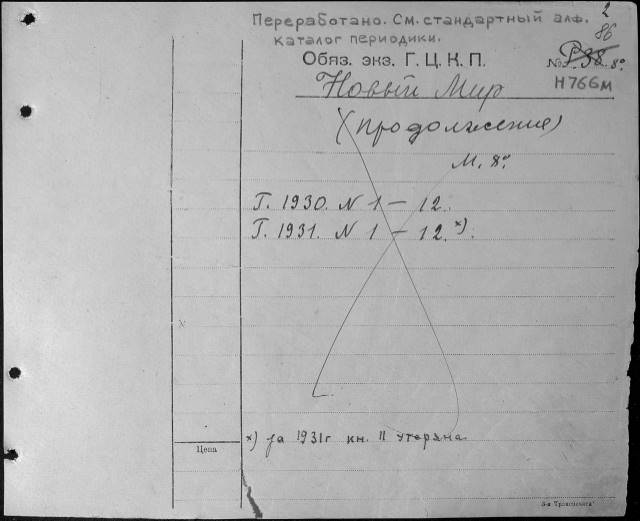 2
Переработано. См. стандартный алф.
86
каталог периодики.
Обяз. экз. Г. Ц. К. П.
№ Р.38. 8°
Новый Мир
Н766м
(продолжение)
М. 8°
Г. 1930. N 1 — 12.
Г. 1931. N 1 — 12 х).
х) за 1931г кн. 11 утеряна
Цена